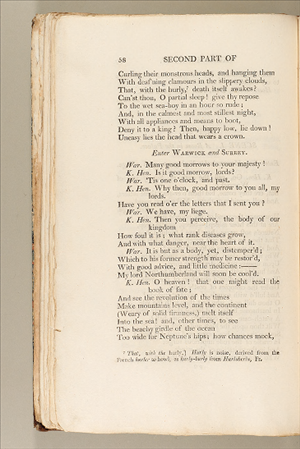 58 SECOND PART OF
Curling their monstrous heads, and hanging them
With deaf'ning clamours in the slippery clouds,
That, with the hurly,¹ death itself awakes?
Can'st thou, O partial sleep! give thy repose
To the wet sea-boy in an hour so rude;
And, in the calmest and most stillest night,
With all appliances and means to boot,
Deny it to a king? Then, happy low, lie down!
Uneasy lies the head that wears a crown.
Enter WARWICK and SURREY.
War. Many good morrows to your majesty!
K. Hen. Is it good morrow, lords?
War. 'Tis one o'clock, and past.
K. Hen. Why then, good morrow to you all, my
lords.
Have you read o'er the letters that I sent you?
War. We have, my liege.
K. Hen. Then you perceive, the body of our
kingdom
How foul it is; what rank diseases grow,
And with what danger, near the heart of it.
War. It is but as a body, yet, distemper'd;
Which to his former strength may be restor'd,
With good advice, and little medicine:—
My lord Northumberland will soon be cool'd.
K. Hen. O heaven! that one might read the
book of fate;
And see the revolution of the times
Make mountains level, and the continent
(Weary of solid firmness,) melt itself
Into the sea! and, other times, to see
The beachy girdle of the ocean
Too wide for Neptune's hips; how chances mock,
¹ That, with the hurly,] Hurly is noise, derived from the
French hurler to howl, as hurly-burly from Hurluberlu, Fr.